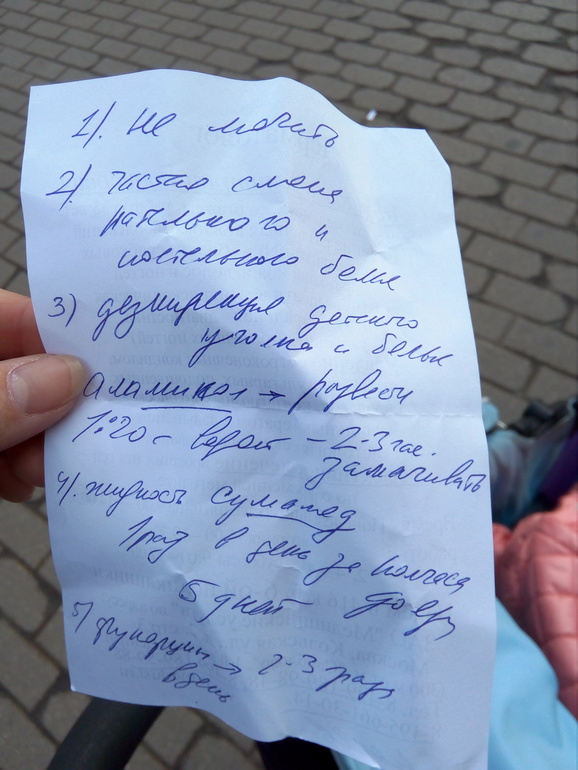 1). Не мочить
2) частая смена
нательного и
постельного белья
3) дезинфекция детского
уголка и белья
Аламинол → развести
1:20 с водой – 2-3 час.
замачивать
4). жидкость сумамед
1 раз в день за полчаса
5 дней до еды
5) фукорцин → 2-3 раза
в день